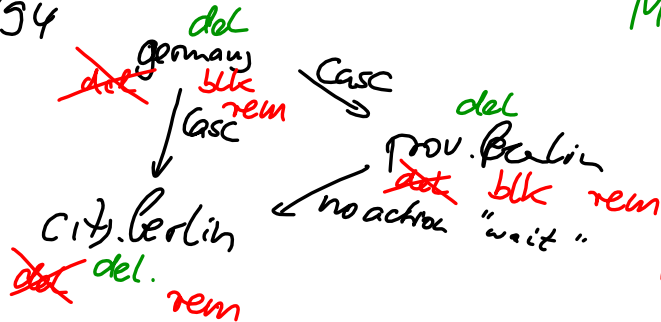 94
del
M
germany
Casc
del
blk
rem
Casc
del
prov.Berlin
del
blk
rem
no action "wait"
city.Berlin
del
del.
rem